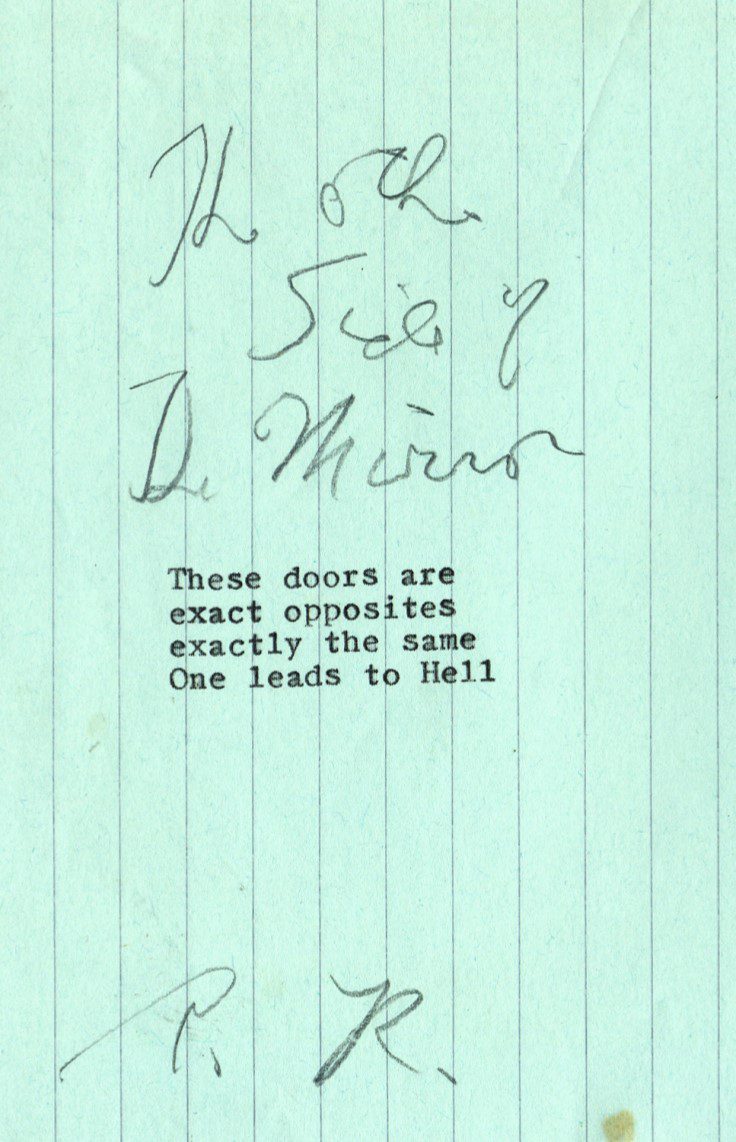 The other
Side of
The Mirror
These doors are
exact opposites
exactly the same
One leads to Hell
P. K.